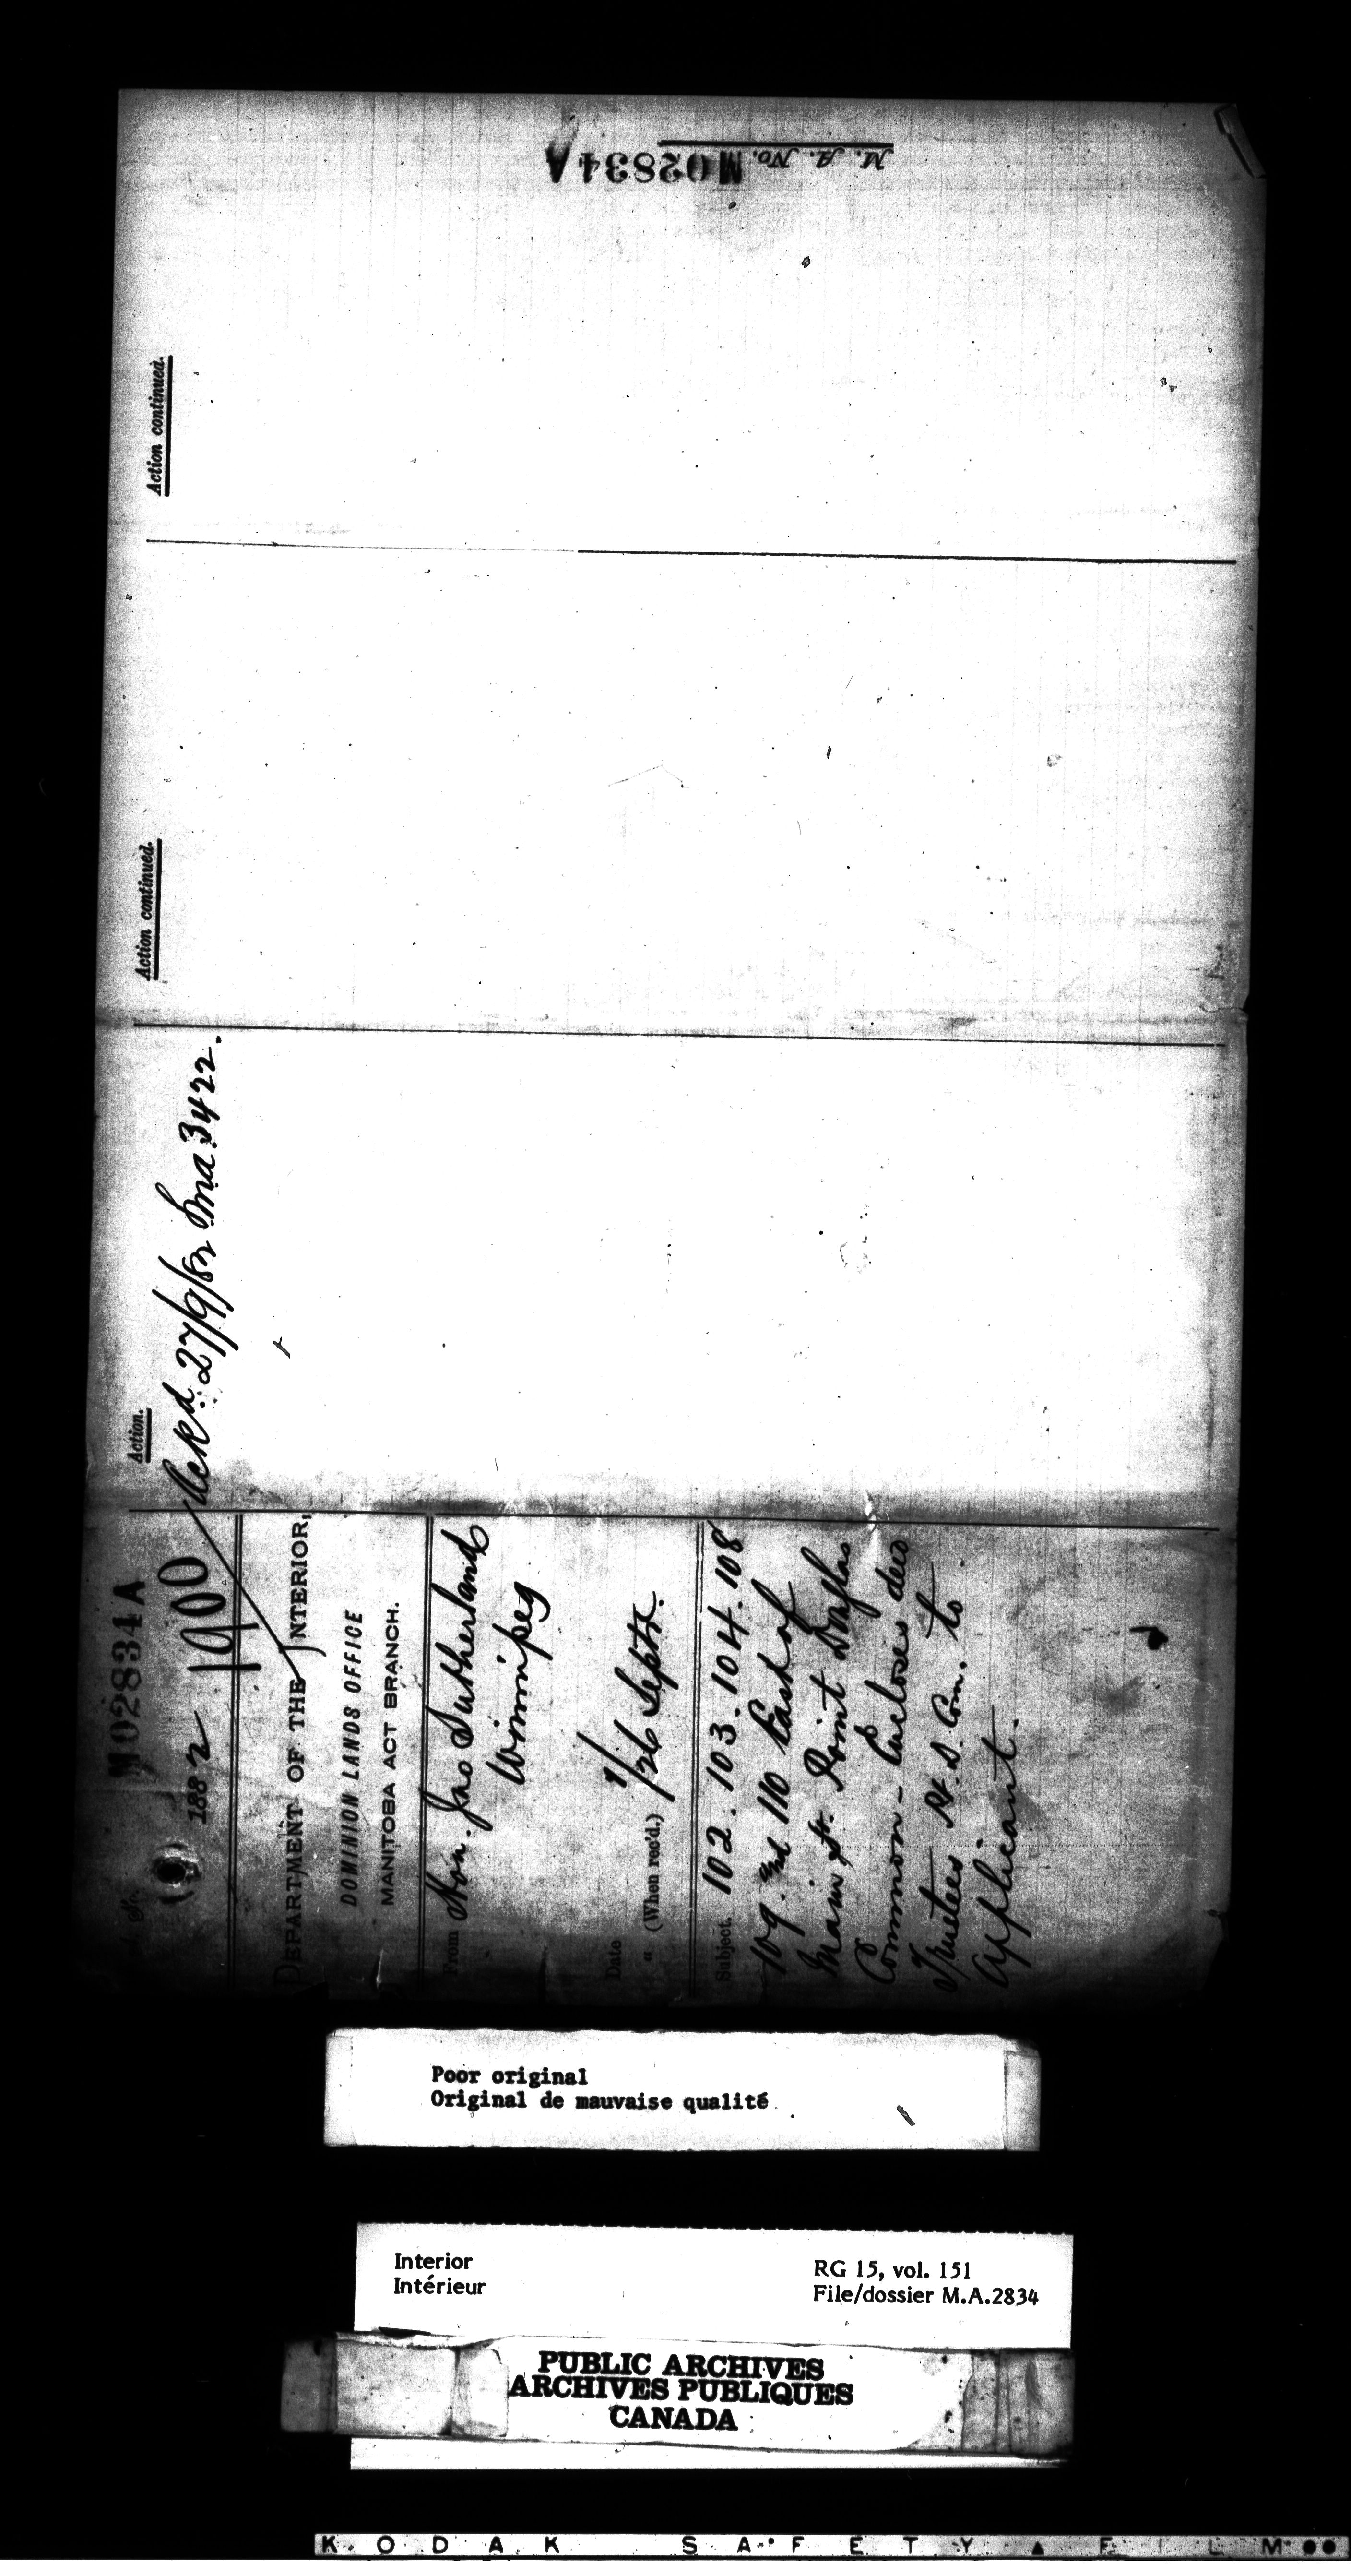 M. A. No. M02834A
Action continued.
Action continued.
Action.
Ackd. 27/9/82 Lma 3422.
M02834A
1882 1900
DEPARTMENT OF THE INTERIOR,
DOMINION LANDS OFFICE
MANITOBA ACT BRANCH.
From Hon. Jno Sutherland
Winnipeg
Date
" (When rec'd.) 26 Septr.
Subject. 102. 103. 104. 108
109. and 110 East of
Main St. Point Douglas
Common - Encloses deed
Trustees H. B. Com. to
Applicant.
Poor original
Original de mauvaise qualité
Interior
Intérieur
RG 15, vol. 151
File/dossier M.A.2834
PUBLIC ARCHIVES
ARCHIVES PUBLIQUES
CANADA
KODAK SAFETY FILM